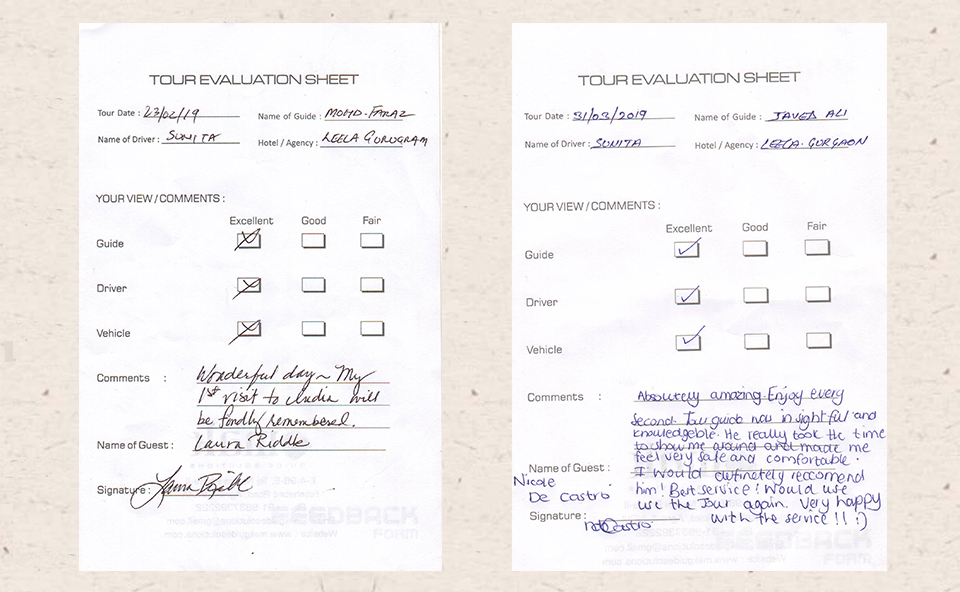 TOUR EVALUATION SHEET
Tour Date : 23/02/19 Name of Guide : MOHD. FARAZ
Name of Driver : SUNITA Hotel / Agency : LEELA GURUGRAM
YOUR VIEW / COMMENTS :
Excellent Good Fair
Guide
Driver
Vehicle
Comments : Wonderful day ~ My
1st visit to India will
be fondly remembered.
Name of Guest : Laura Riddle
Signature :
FEEDBACK
FORM
TOUR EVALUATION SHEET
Tour Date : 31/03/2019 Name of Guide : JAVED ALI
Name of Driver : SUNITA Hotel / Agency : LEELA. GURGAON
YOUR VIEW / COMMENTS :
Excellent Good Fair
Guide
Driver
Vehicle
Comments : Absolutely amazing. Enjoy every
second. Tour guide was insightful and
knowledgeble. He really took the time
to show me around and made me
feel very safe and comfortable.
I would definetely reccomend
him! Best service! Would use
use the Tour again. Very happy
with the service!! :)
Name of Guest :
Nicole
De Castro
Signature :
FEEDBACK
FORM